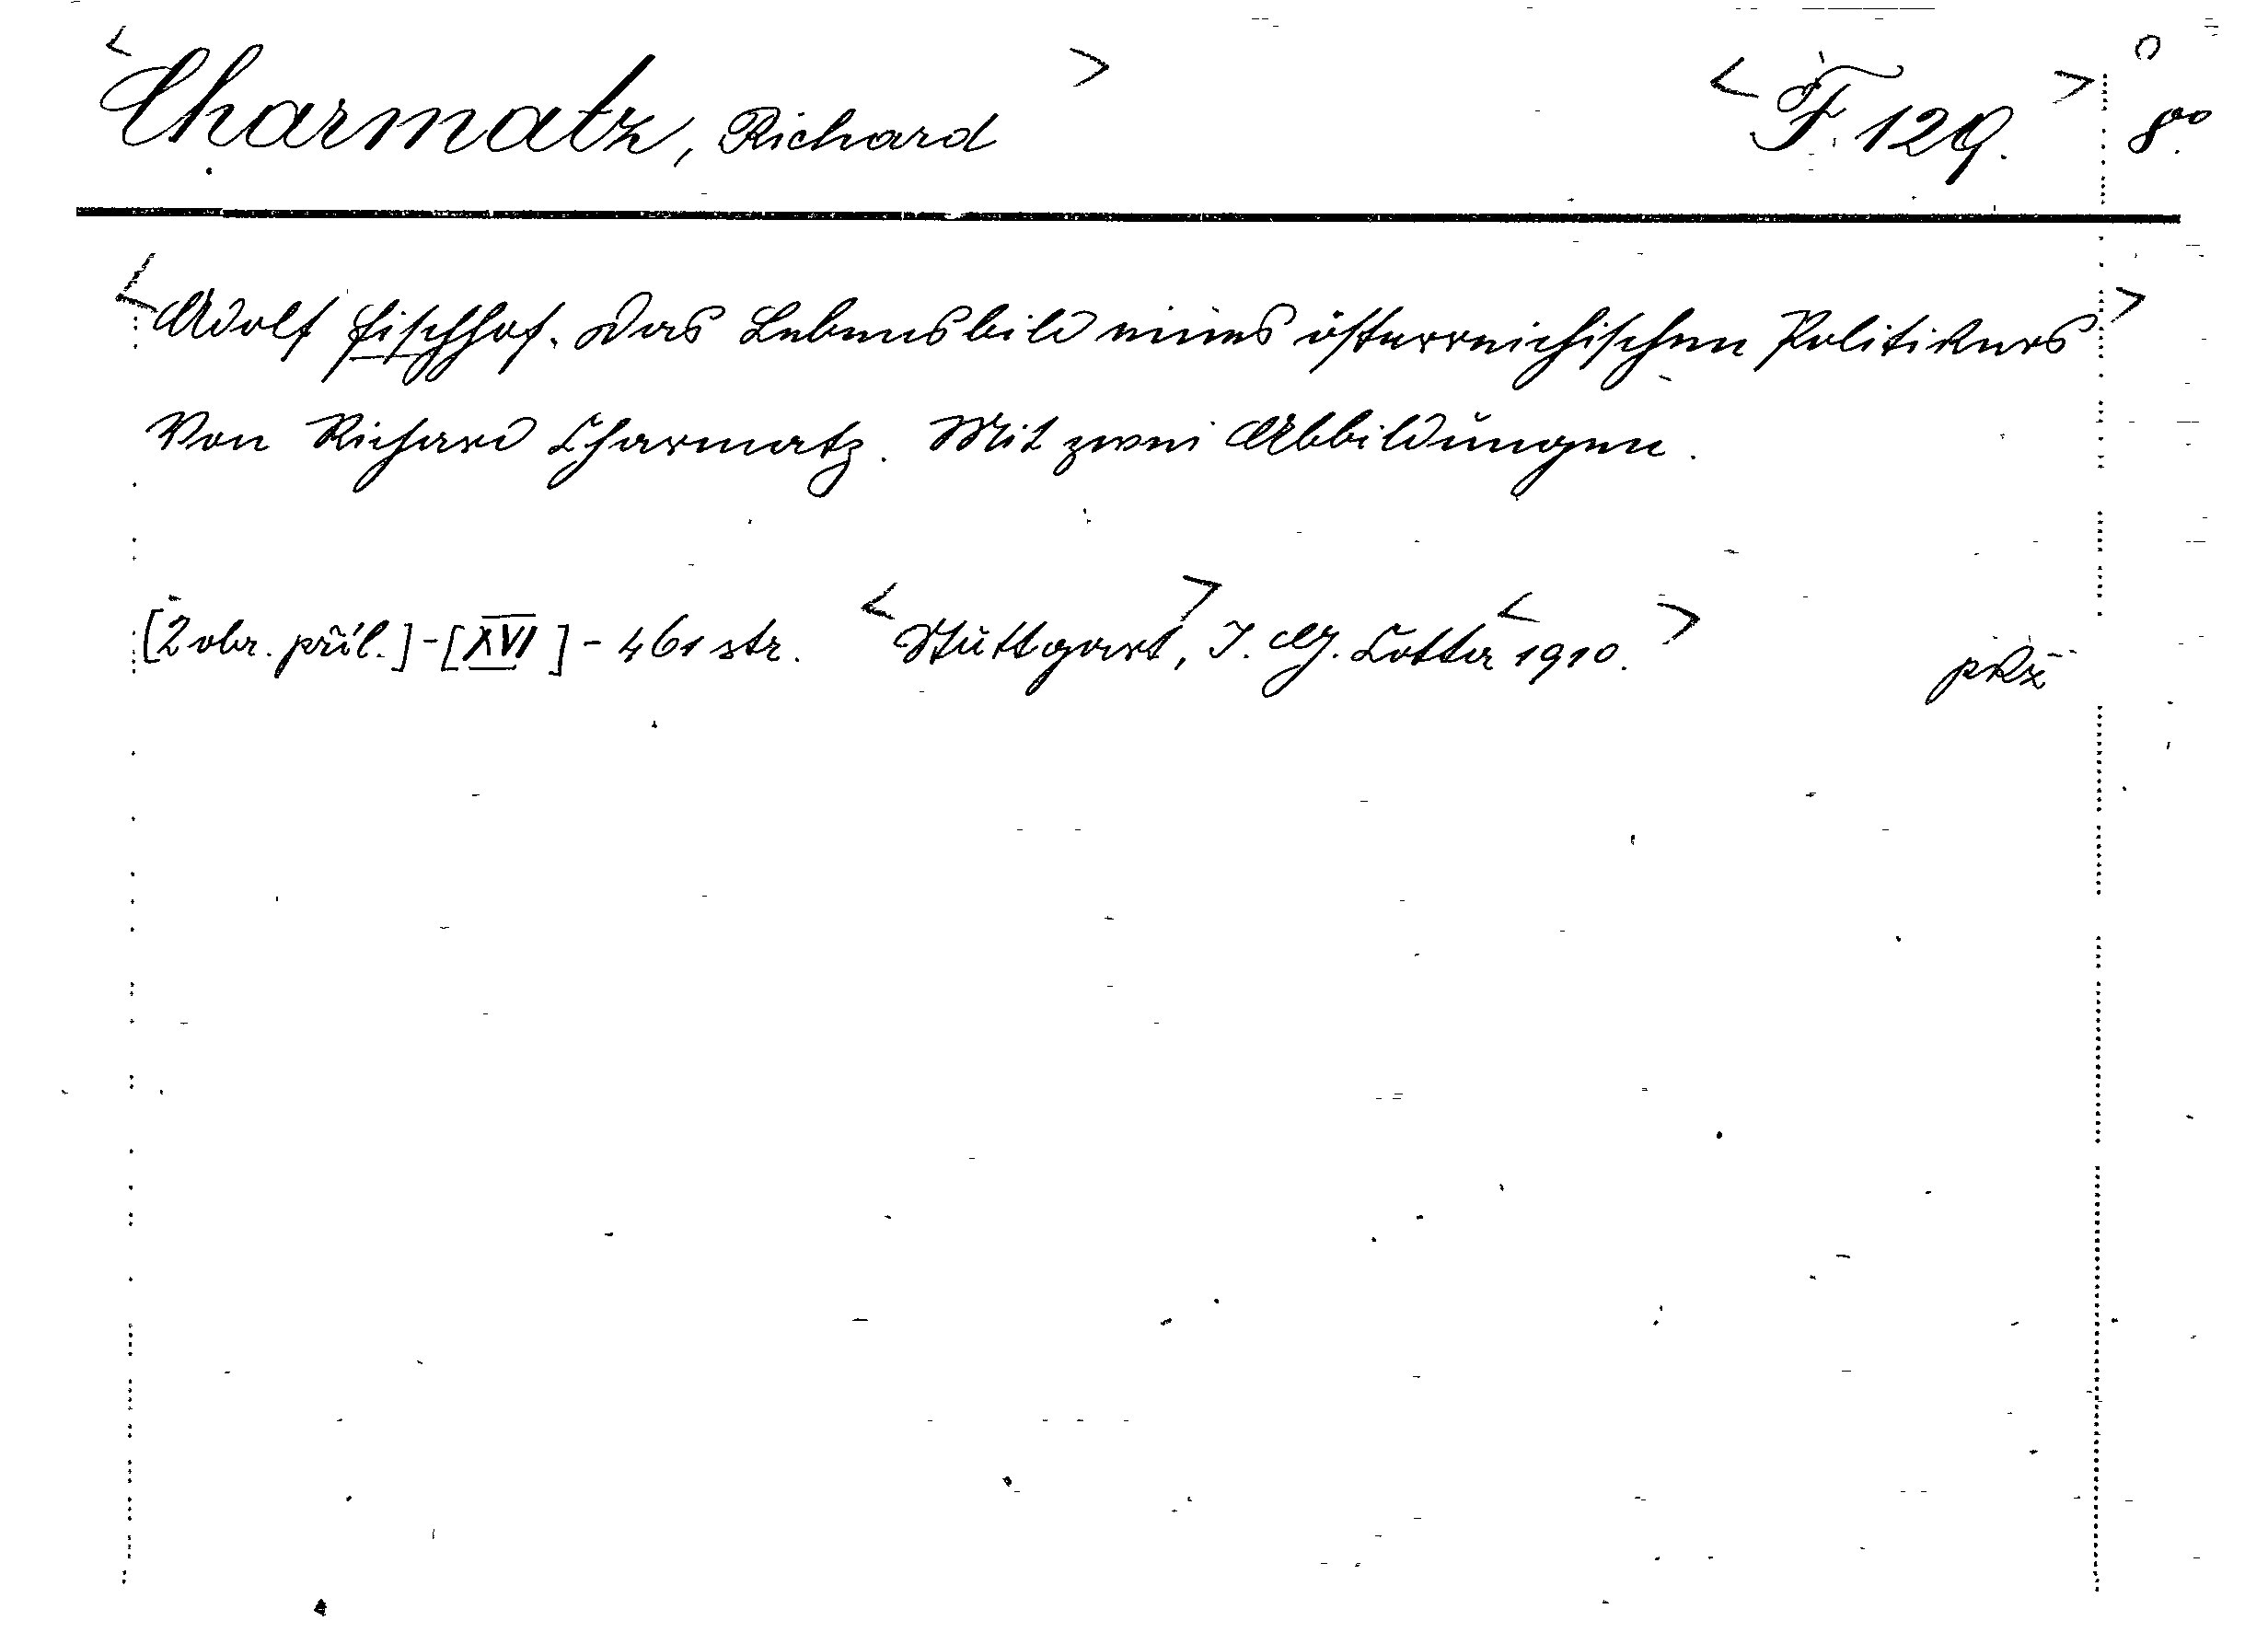 <Charmatz, Richard> <F. 129.> 8°°.
<Adolf Fischhof. Das Lebensbild eines österreichischen Politikers>
Von Richard Charmatz. Mit zwei Abbildungen.
[2 obr. příl.] - [XVI] - 461 str. <Stuttgart>, J. G. Cotta <1910.>